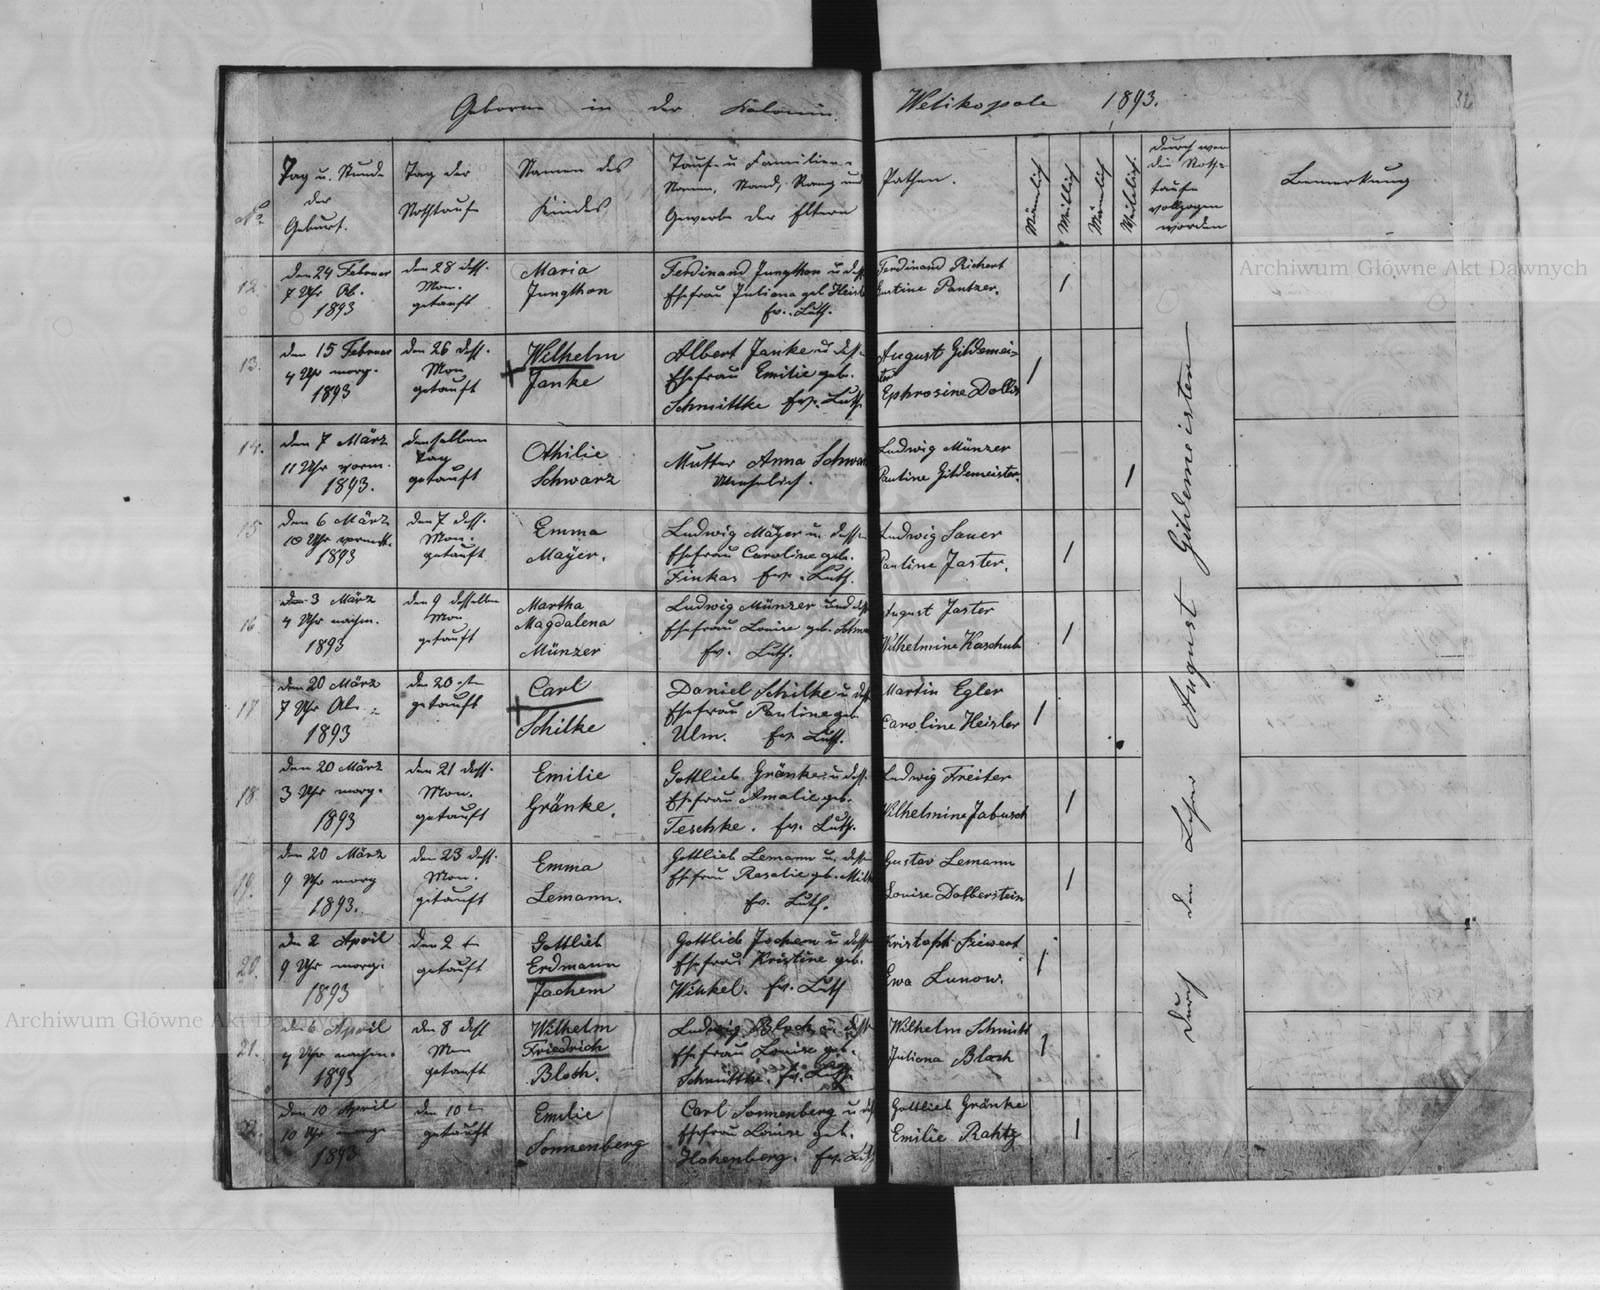 Geborne in der Kolonie Welikopole 1893.
32
No
Tag u. Stunde
der
Geburt.
Tag der
Nothtaufe
Namen des
Kindes
Taufe u Familien-
Namen, Stand, Rang und
Gewerbe der Eltern
Pathen.
Männlich
Weiblich
Männlich
Weiblich
durch wen
die Noth-
taufe
vollzogen
worden
Bemerkung
12.
den 24 Februar
7 Uhr Ab.
1893
den 28 dess.
Mon.
getauft
Maria
Jungthon
Ferdinand Jungthon u dess
Ehefrau Juliana geb
Ev. Luth.
Ferdinand Richert
Pantzer.
1
13.
den 15 Februar
4 Uhr morg.
1893
den 26 dess.
Mon
getauft
Wilhelm
Janke
Albert Janke u dess
Ehefrau Emilie geb.
Schmittke Ev. Luth
August Gildemei-
ster
Ephrosine
1
14.
den 7 März
11 Uhr vorm.
1893.
denselben
Tag
getauft
Othilie
Schwarz
Mutter Anna Schwar
Unehelich.
Ludwig Münzer
Pauline Gildemeister.
1
15
den 6 März
10 Uhr
1893
den 7 dess.
Mon.
getauft
Emma
Mayer.
Ludwig Mayer u. dess
Ehefrau Caroline geb.
Finkas Ev. Luth.
Ludwig Sauer
Pauline Jaster.
1
16
den 3 März
4 Uhr nachm.
1893
den 9 desselben
Mon
getauft
Martha
Magdalena
Münzer
Ludwig Münzer und dess
Ehefrau Louise geb.
Ev. Luth.
August Jaster
Wilhelmine Kaschub
1
17
den 20 März
7 Uhr Ab.
1893
den 20 ten
getauft
Carl
Schilke
Daniel Schilke u dess
Ehefrau Pauline geb
Ulm. Ev. Luth.
Martin Egler
Caroline Heisler
1
18
den 20 März
3 Uhr morg.
1893
den 21 dess.
Mon.
getauft
Emilie
Gränke.
Gottlieb Gränke u dess.
Ehefrau Amalie geb.
Teschke. Ev. Luth.
Ludwig Freiter
Wilhelmine Jabusch
1
19.
den 20 März
9 Uhr morg
1893.
den 23 dess.
Mon.
getauft
Emma
Lemann.
Gottlieb Lemann u. dess
Ehefrau Rosalie geb.
Ev. Luth.
Gustav Lemann
Louise Dalberstein
1
20.
den 2 April
9 Uhr morg.
1893
den 2 t
getauft
Gottlieb
Erdmann
Jachem
Gottlieb Jochem u dess
Ehefrau Kristine geb.
Winkel. Ev. Luth
Kristoph Siewert
Ewa Lunow.
1
21.
den 6 April
4 Uhr nachm.
1893
den 8 dess
Mon
getauft
Wilhelm
Friedrich
Bloch.
Ludwig Bloch u. dess
Ehefrau Louise geb.
Schmittke. Ev. Luth
Wilhelm Schmidt
Juliana Bloch
1
22.
den 10 April
10 Uhr morg.
1893
den 10 t
getauft
Emilie
Sonnenberg
Carl Sonnenberg u dess
Ehefrau Louise geb.
Hohenberg. Ev. Luth
Gottlieb Gränke
Emilie Rahtz
1
Durch den Lehrer August Gildemeister
Archiwum Główne Akt Dawnych
Archiwum Główne Akt Dawnych